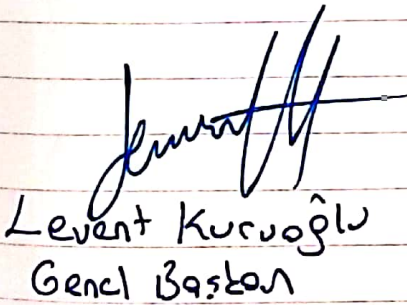 Levent Kuruoğlu
Genel Başkan